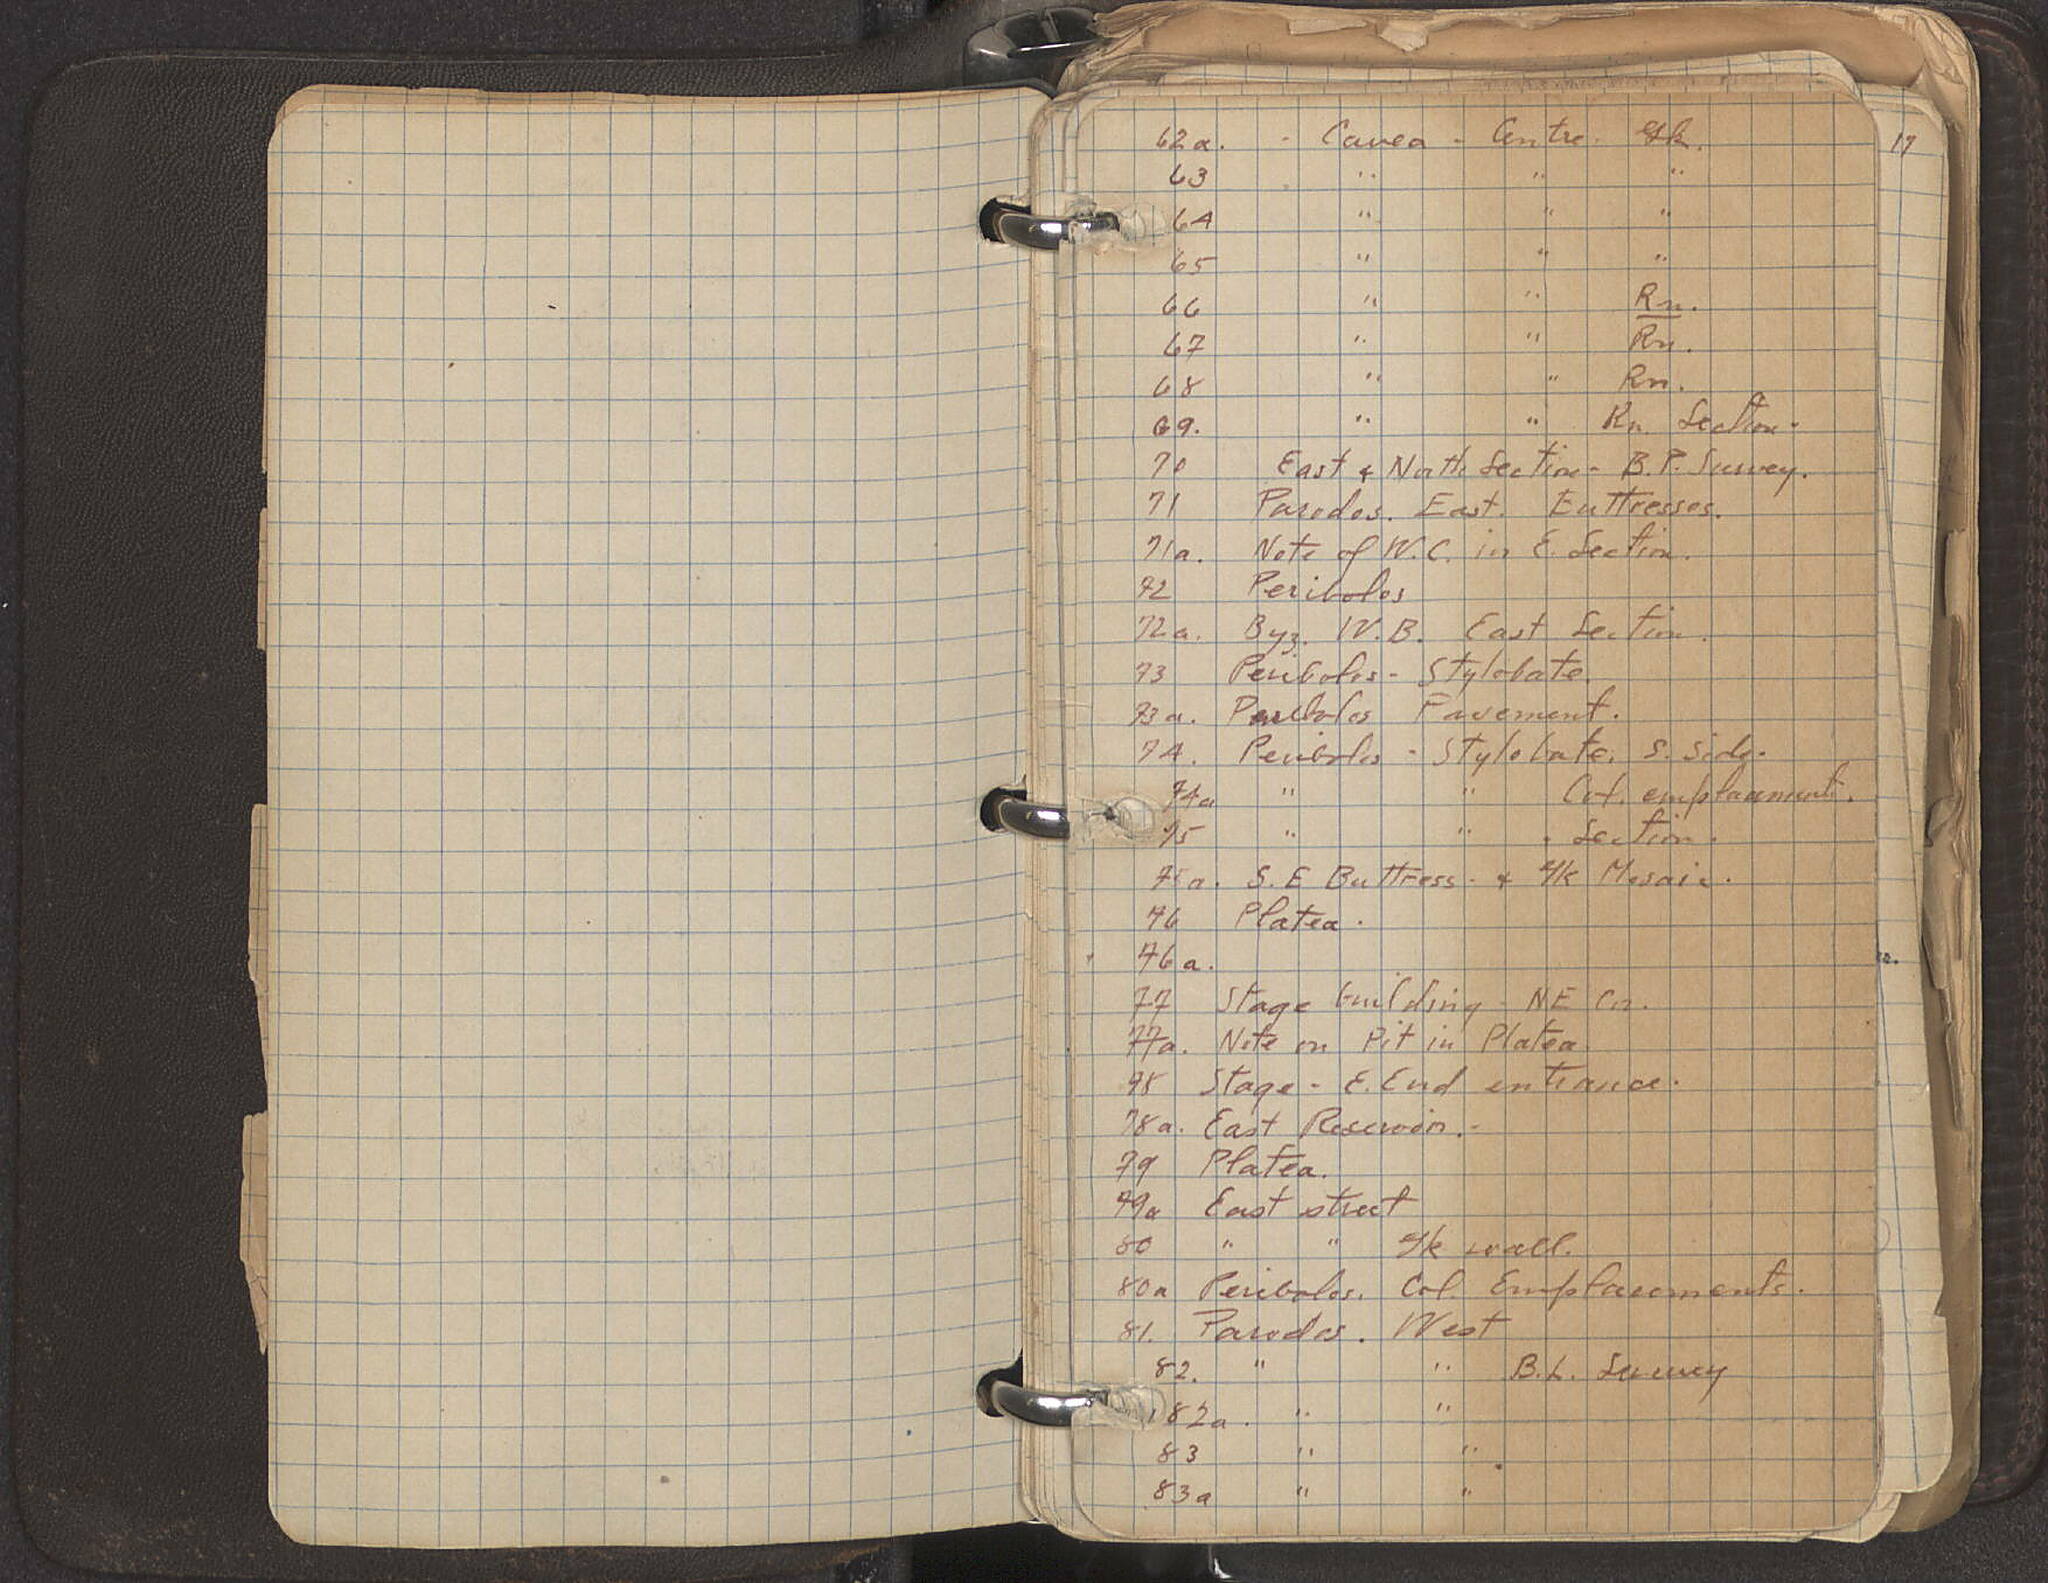 62a. - Cavea - Centre. Gk.
63 " " "
64 " " "
65 " " "
66 " " Rn.
67 " " Rn.
68 " " Rn.
69. " " Rn. Section.
70 East & North Section - B.P. Survey.
71 Parodos. East. Buttresses.
71a. Note of W.C. in E. Section.
72 Peribolos
72a. Byz. W.B. East Section.
73 Peribolos - Stylobate.
73a. Peribolos Pavement.
74. Peribolos - Stylobate. S. Side.
74a " " Col. emplacement.
75 " " . Section.
75a. S.E Buttress - & Gk Mosaic.
76 Platea.
76a.
77 Stage building - NE Cor.
77a. Note on Pit in Platea
78 Stage - E. End entrance.
78a. East Reservoir.-
79 Platea.
79a East street
80 " " Gk wall.
80a Peribolos. Col. Emplacements.
81. Parodos. West
82. " " B.L. Survey
82a. " "
83 " "
83a " "
17